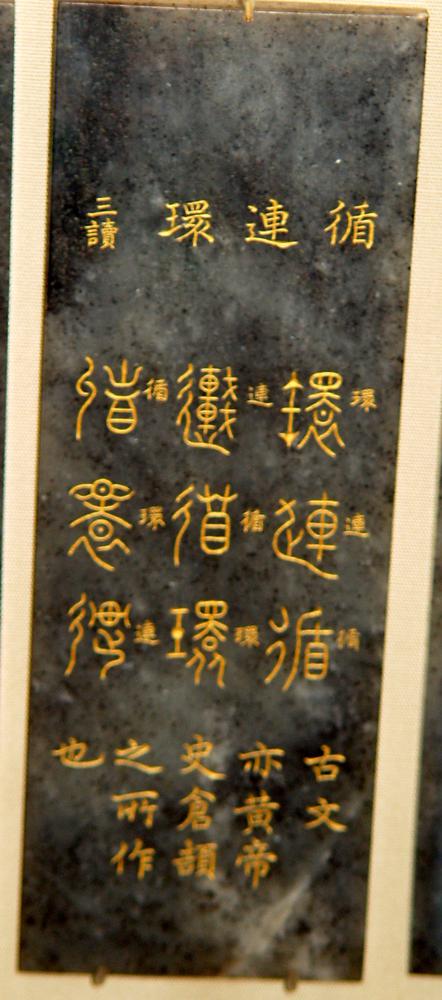 循連環
三讀
環連循
環連循
連循環
連循環
循環連
循環連
古文
亦黄帝
史倉頡
之所作
也